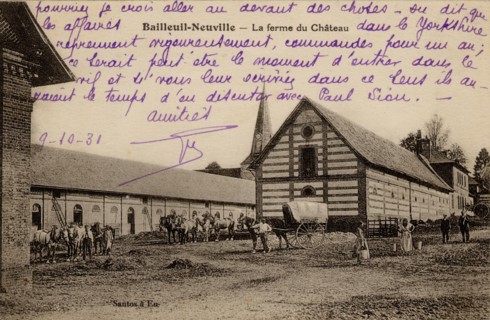 pourriez je crois aller au devant des choses — on dit que
Bailleul-Neuville – La ferme du Château
les affaires dans le Yorkshire
reprennent vigoureusement, commandes pour un an;
ce serait peut être le moment d'entrer dans le
et si vous leur écriviez dans ce sens ils au-
raient le temps d'en discuter avec Paul Sion. —
amitiés
9-10-31
Santos à Eu